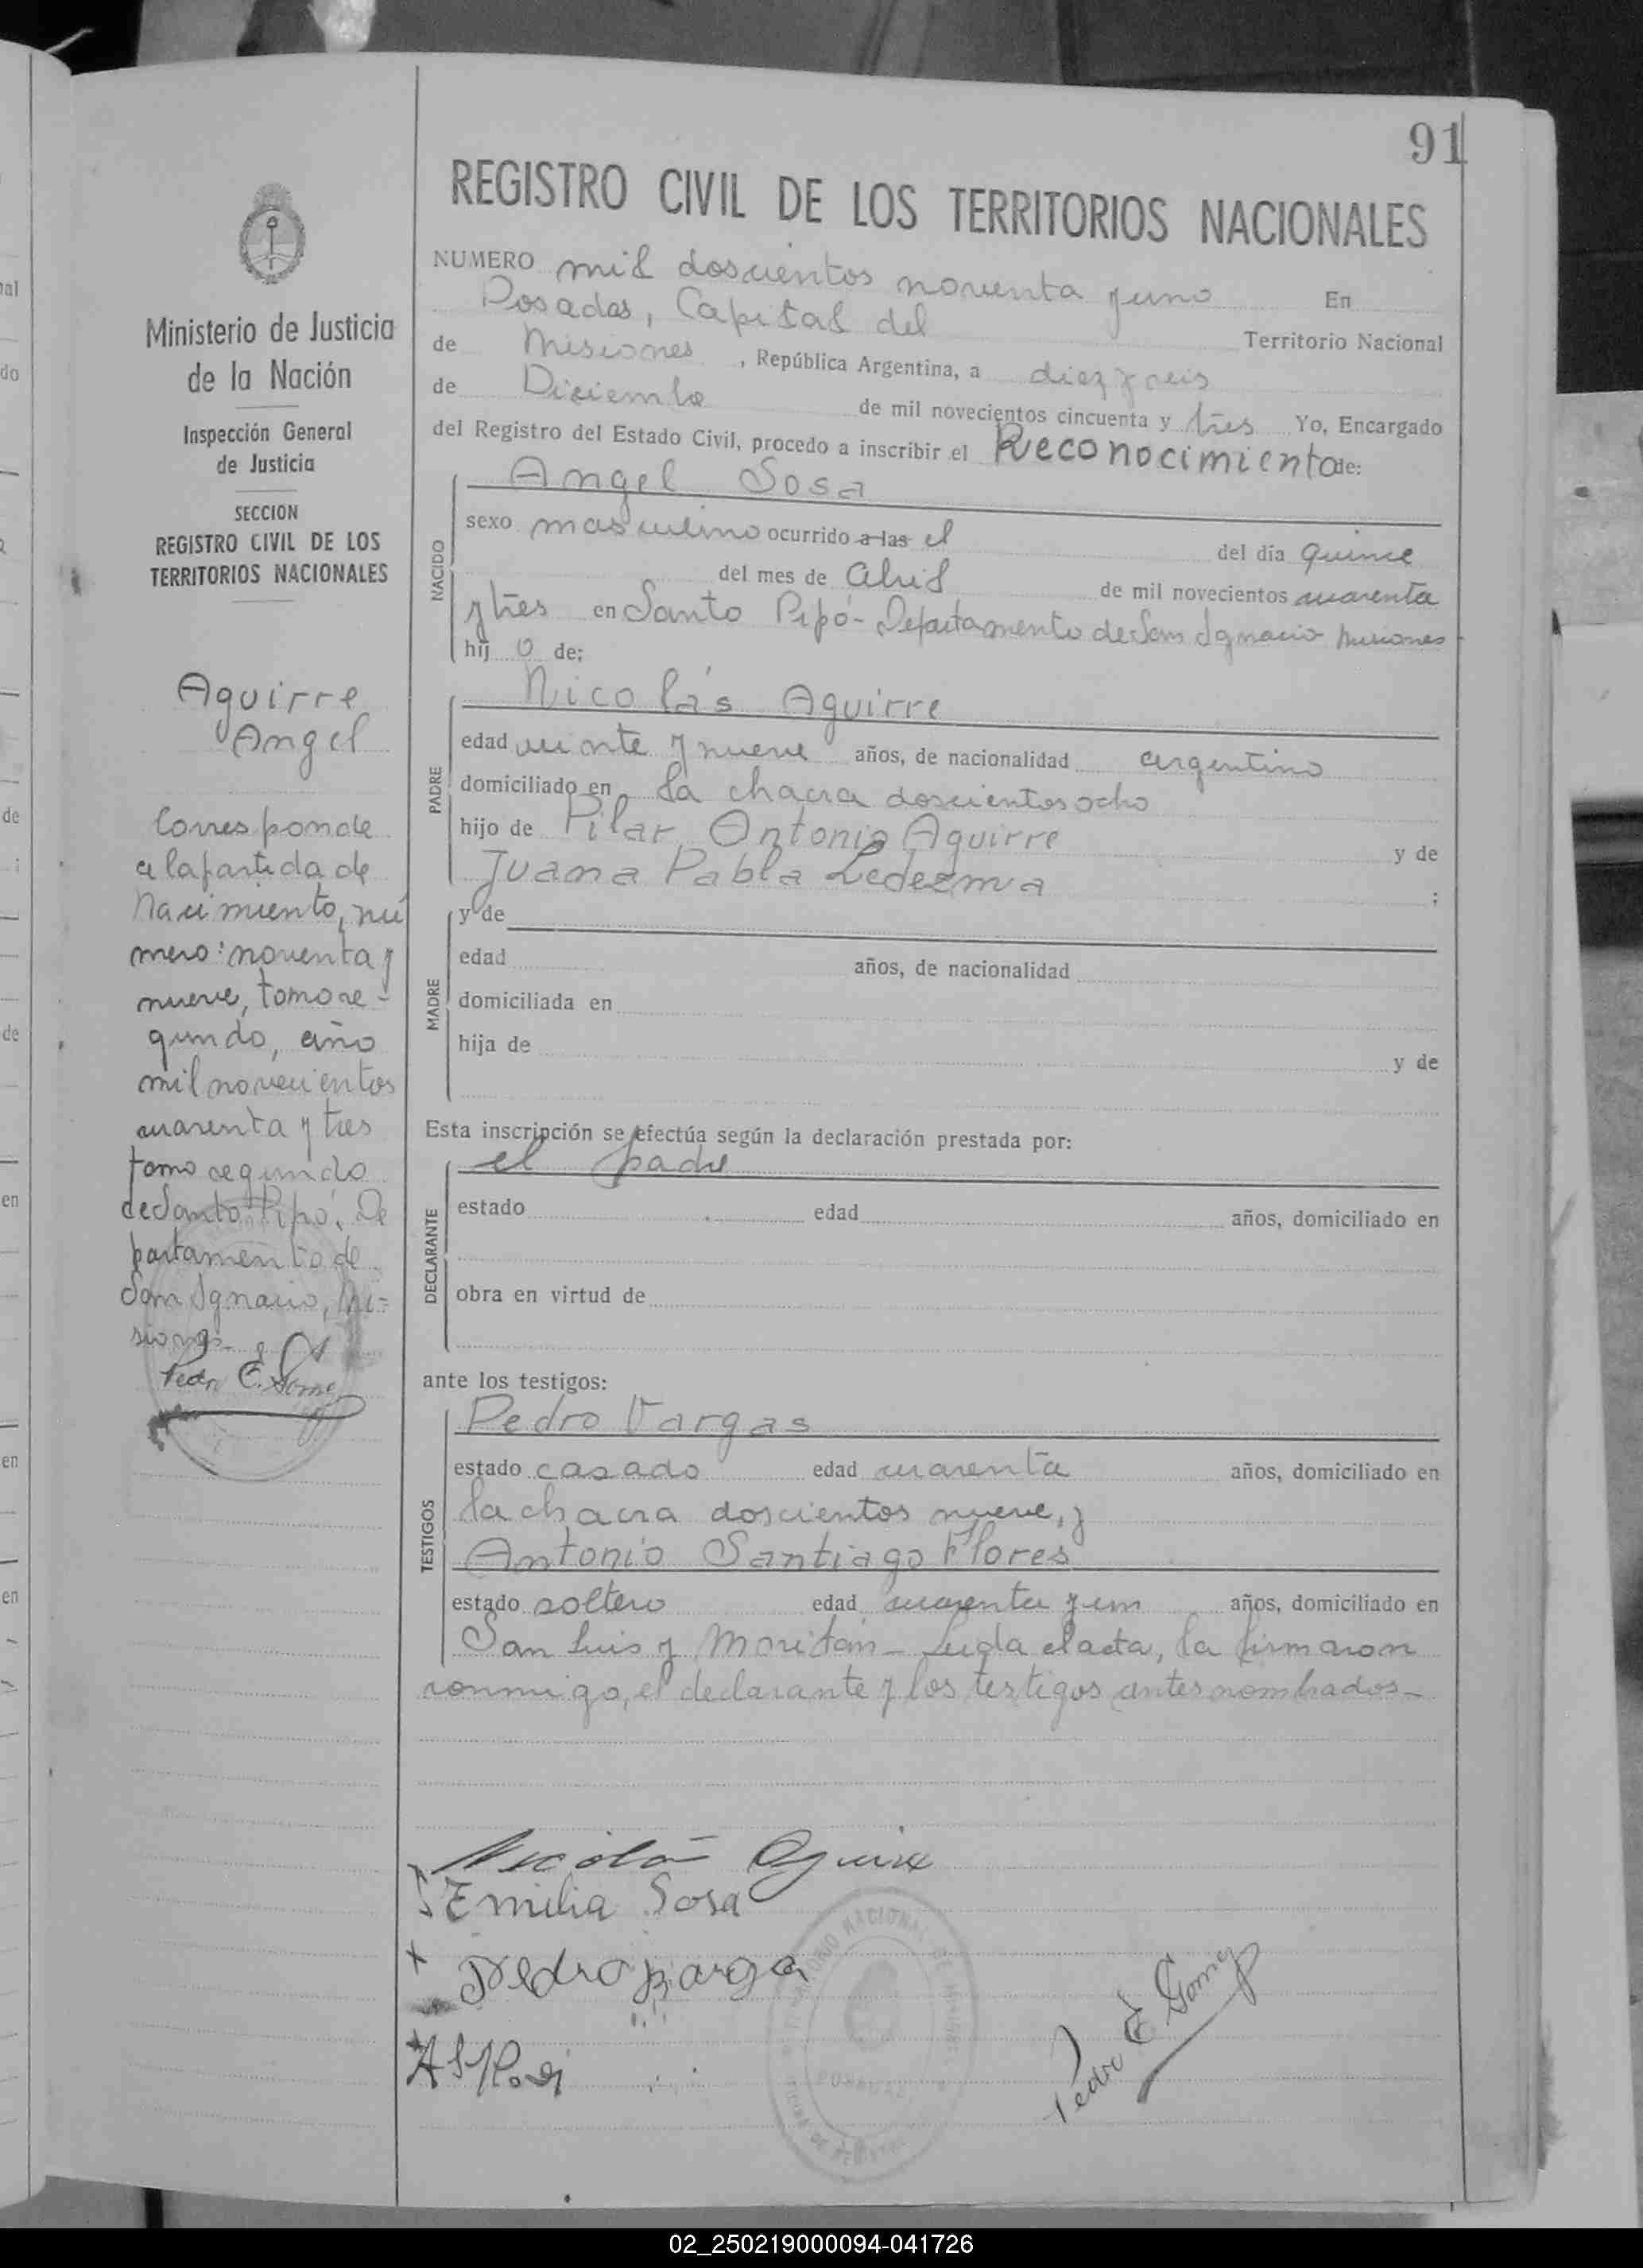 91
REGISTRO CIVIL DE LOS TERRITORIOS NACIONALES
NUMERO mil doscientos noventa y uno En
Posadas, Capital del Territorio Nacional
de Misiones, República Argentina, a diez y seis
de Diciembre de mil novecientos cincuenta y tres Yo, Encargado
del Registro del Estado Civil, procedo a inscribir el Reconocimiento de:
NACIDO
Angel Sosa
sexo masculino ocurrido a las el del día quince
del mes de abril de mil novecientos cuarenta
y tres en Santo Pipó - Departamento de San Ignacio Misiones
hij o de;
PADRE
Nicolás Aguirre
edad veinte y nueve años, de nacionalidad argentino
domiciliado en la chacra doscientos ocho
hijo de Pilar Antonio Aguirre y de
Juana Pabla Ledezma ;
MADRE
y de
edad años, de nacionalidad
domiciliada en
hija de y de
Esta inscripción se efectúa según la declaración prestada por:
DECLARANTE
el padre
estado edad años, domiciliado en
obra en virtud de
ante los testigos:
TESTIGOS
Pedro Vargas
estado casado edad cuarenta años, domiciliado en
la chacra doscientos nueve, y
Antonio Santiago Flores
estado soltero edad cuarenta y un años, domiciliado en
San Luis y Moritán - Leída el acta, la firmaron
conmigo, el declarante y los testigos antes nombrados -
Nicolás Aguirre
Emilia Sosa
Pedro Barga
Pedro E. Gomez
Ministerio de Justicia
de la Nación
Inspección General
de Justicia
SECCION
REGISTRO CIVIL DE LOS
TERRITORIOS NACIONALES
Aguirre
Angel
Corresponde
a la partida de
Nacimiento, nú
mero: noventa y
nueve, tomo se-
gundo, año
mil novecientos
cuarenta y tres
tomo segundo
de Santo Pipó, De
partamento de
San Ignacio, Mi=
siones -
Pedro E. Gomez
02_250219000094-041726